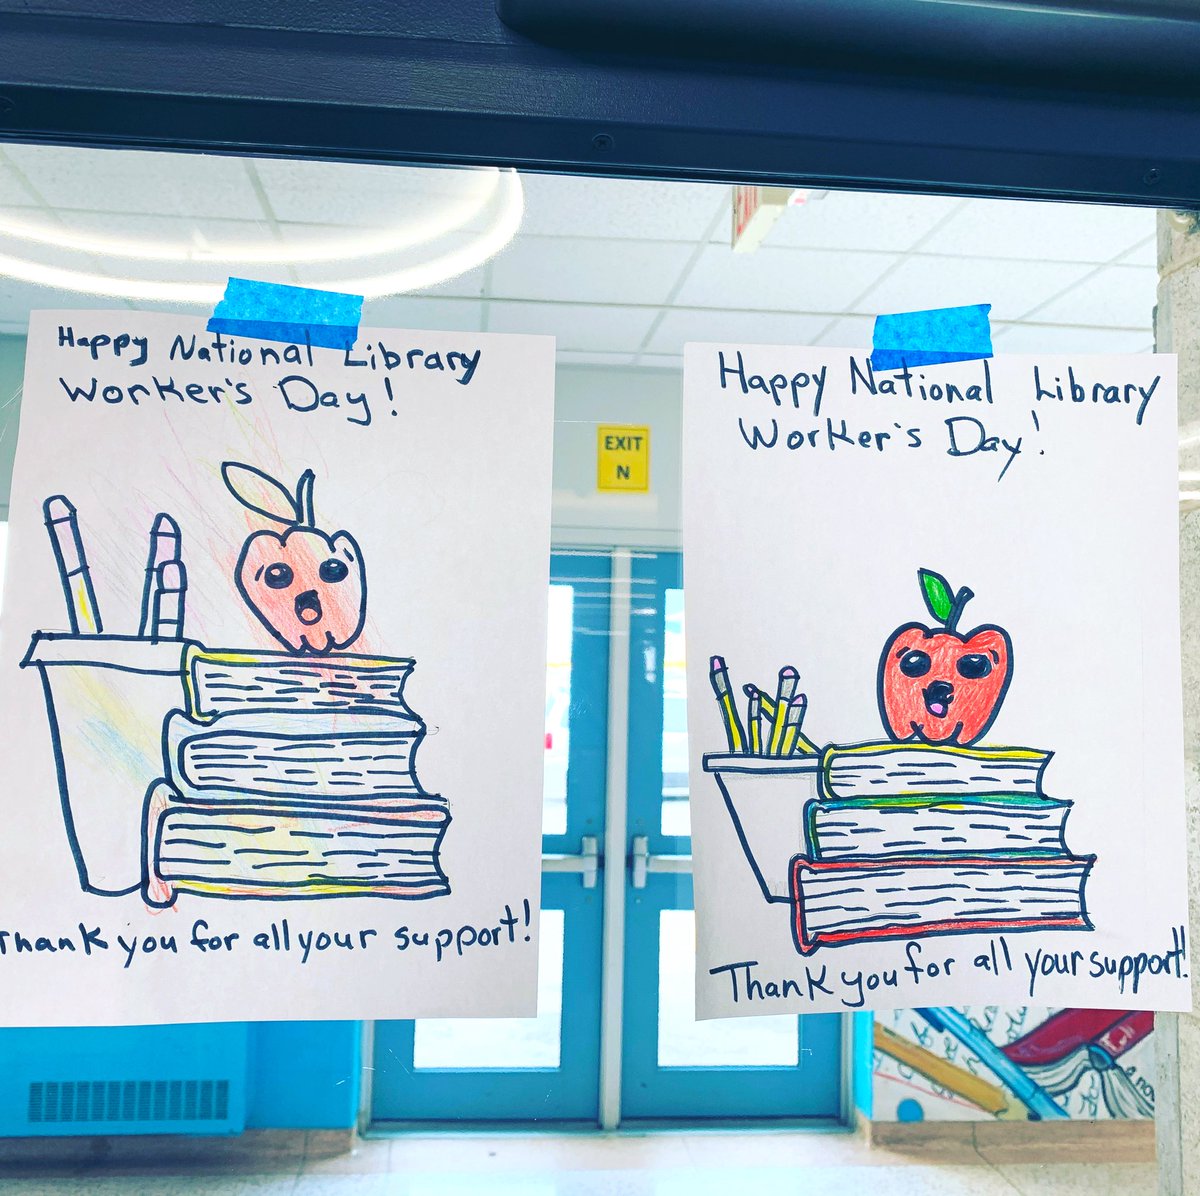 Happy National Library
Worker's Day!
Thank you for all your support!
EXIT
N
Happy National Library
Worker's Day!
Thank you for all your support!